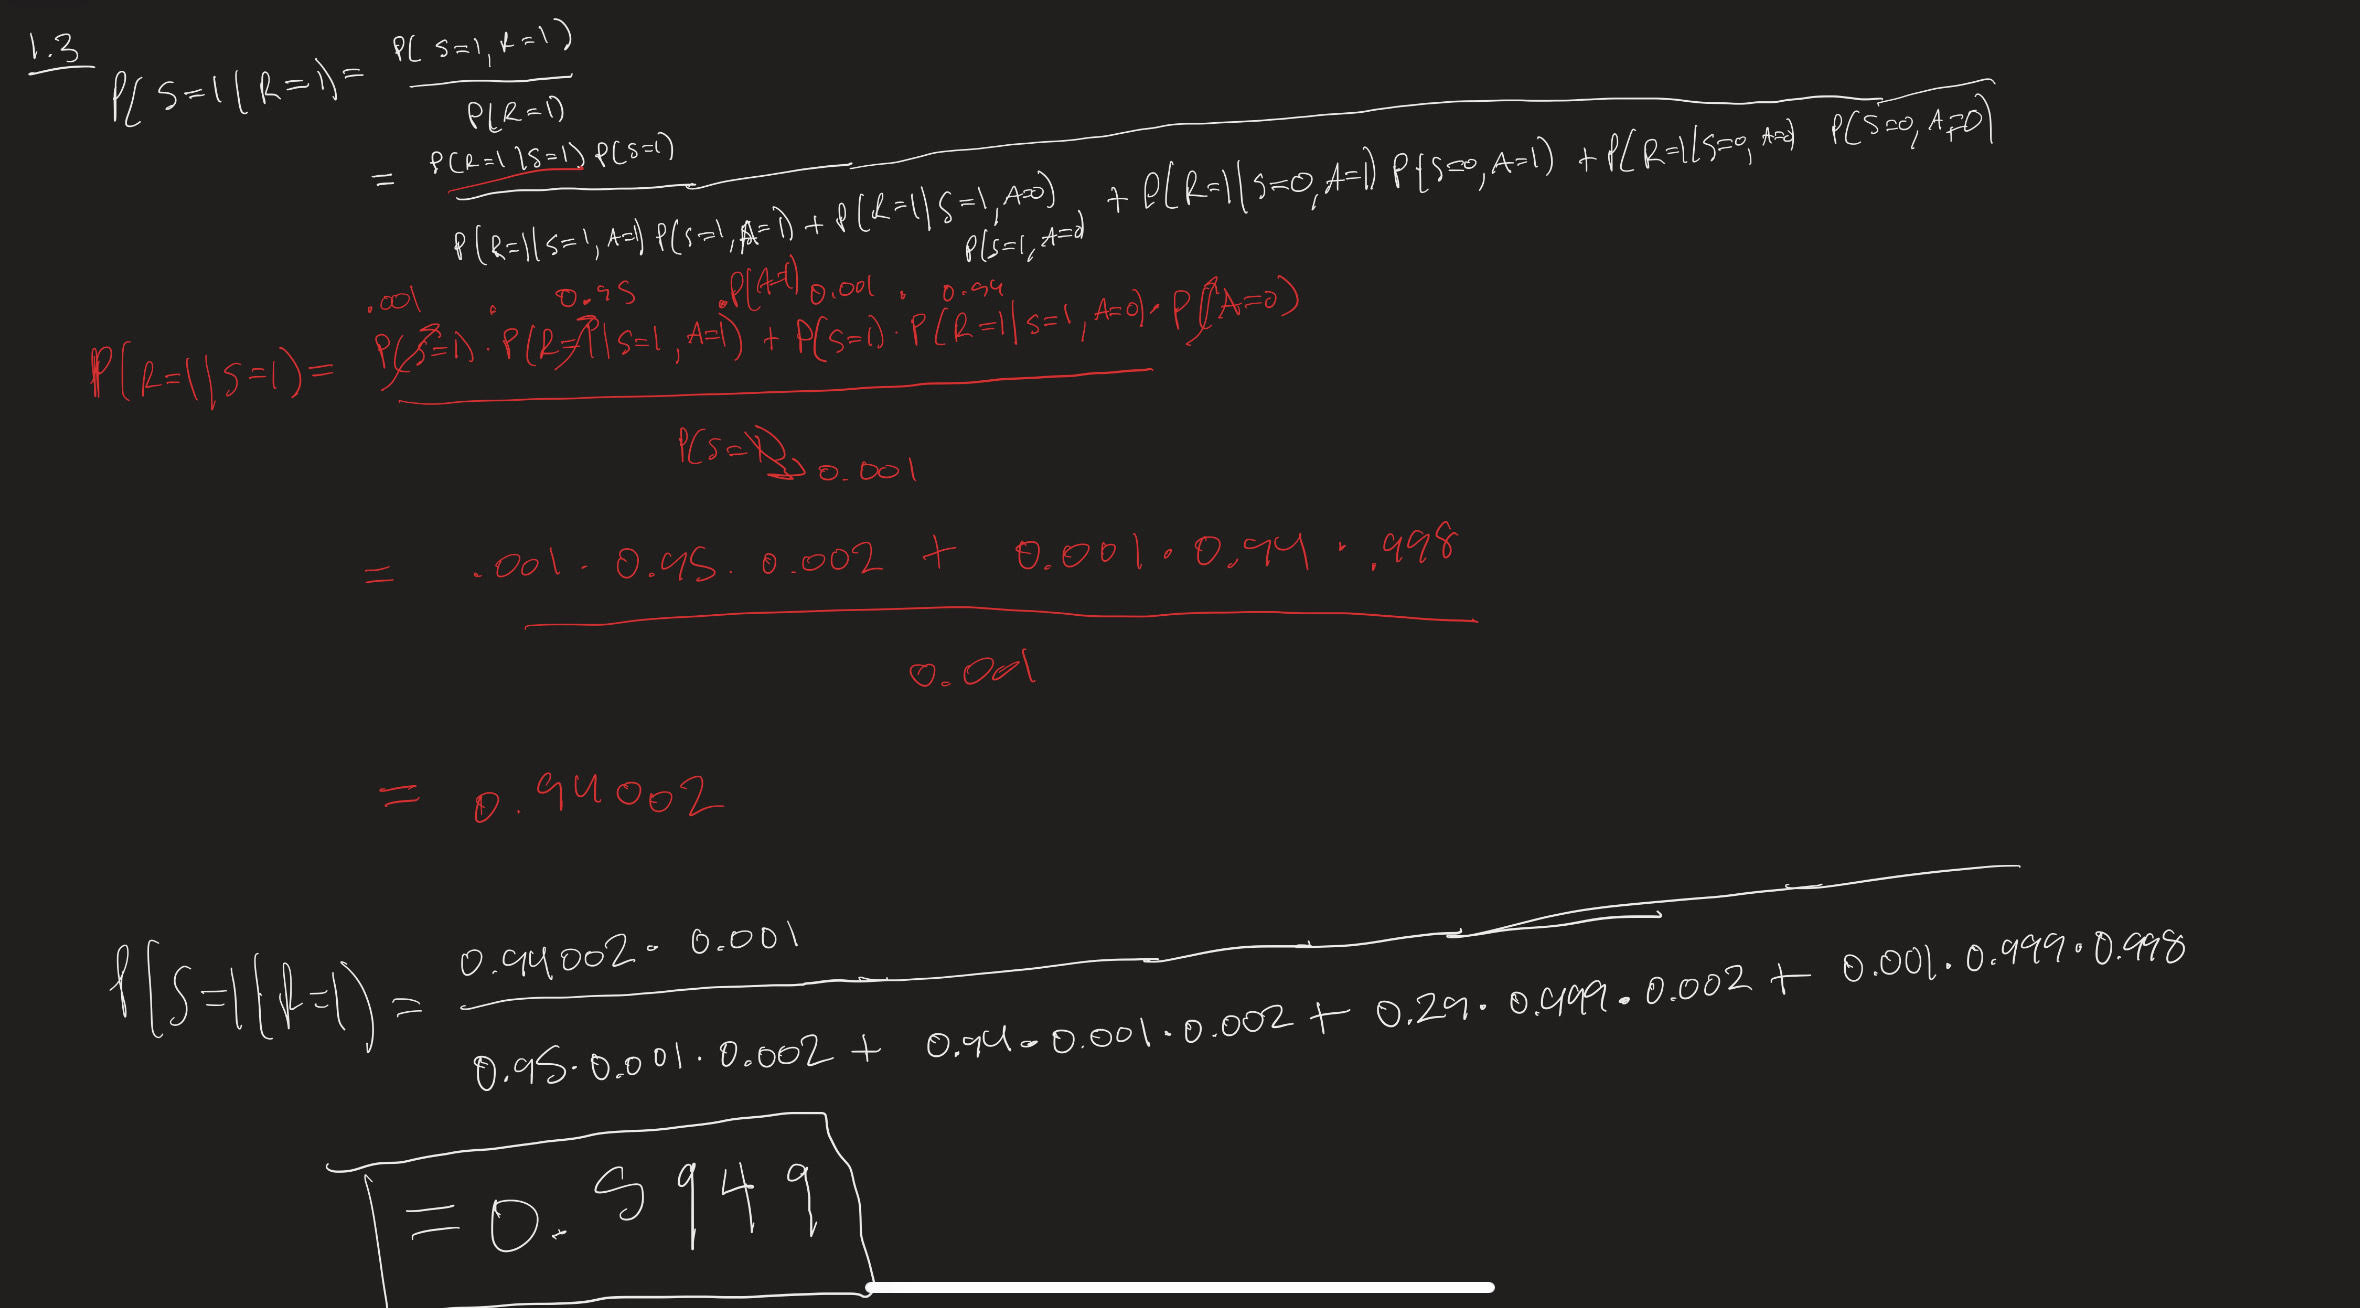 1.3
P(S=1|R=1) = P(S=1, R=1)
P(R=1)
= P(R=1|S=1) P(S=1)
P(R=1|S=1, A=1) P(S=1, A=1) + P(R=1|S=1, A=0) P(S=1, A=0) + P(R=1|S=0, A=1) P(S=0, A=1) + P(R=1|S=0, A=0) P(S=0, A=0)
.001 · 0.95 · P(A=1) 0.001 · 0.94
P(R=1|S=1) = P(S=1) · P(R=1|S=1, A=1) + P(S=1) · P(R=1|S=1, A=0) · P(A=0)
P(S=1) 0.001
= .001 · 0.95 · 0.002 + 0.001 · 0.94 · .998
0.001
= 0.94002
P(S=1|R=1) = 0.94002 · 0.001
0.95 · 0.001 · 0.002 + 0.94 · 0.001 · 0.002 + 0.29 · 0.999 · 0.002 + 0.001 · 0.999 · 0.998
= 0.5949